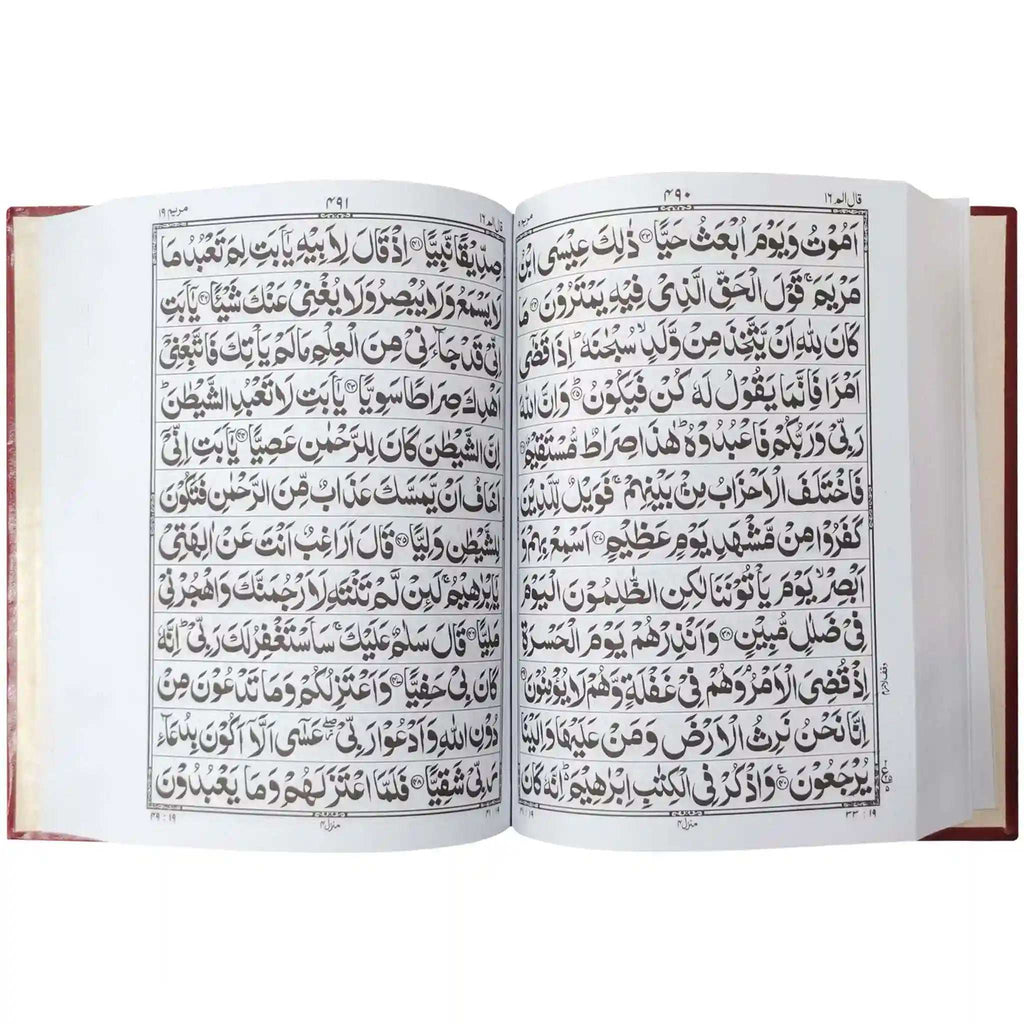 قال الم ١٦
۴۹۰
مریم ۱۹
اَمُوۡتُ وَ يَوۡمَ اُبۡعَثُ حَيًّا ﴿۳۳﴾ ذٰلِكَ عِيۡسَى ابۡنُ
مَرۡيَمَ ۚ قَوۡلَ الۡحَـقِّ الَّذِىۡ فِيۡهِ يَمۡتَرُوۡنَ ﴿۳۴﴾ مَا
كَانَ لِلّٰهِ اَنۡ يَّتَّخِذَ مِنۡ وَّلَدٍ ۙ سُبۡحٰنَهٗ ؕ اِذَا قَضٰٓى
اَمۡرًا فَاِنَّمَا يَقُوۡلُ لَهٗ كُنۡ فَيَكُوۡنُ ؕ ﴿۳۵﴾ وَاِنَّ اللّٰهَ
رَبِّىۡ وَرَبُّكُمۡ فَاعۡبُدُوۡهُ ؕ هٰذَا صِرَاطٌ مُّسۡتَقِيۡمٌ ﴿۳۶﴾
فَاخۡتَلَفَ الۡاَحۡزَابُ مِنۡۢ بَيۡنِهِمۡ ۚ فَوَيۡلٌ لِّلَّذِيۡنَ
كَفَرُوۡا مِنۡ مَّشۡهَدِ يَوۡمٍ عَظِيۡمٍ ﴿۳۷﴾ اَسۡمِعۡ بِهِمۡ وَ
اَبۡصِرۡ ۙ يَوۡمَ يَاۡتُوۡنَنَا لٰـكِنِ الظّٰلِمُوۡنَ الۡيَوۡمَ
فِىۡ ضَلٰلٍ مُّبِيۡنٍ ﴿۳۸﴾ وَاَنۡذِرۡهُمۡ يَوۡمَ الۡحَسۡرَةِ
اِذۡ قُضِىَ الۡاَمۡرُ ۘ وَهُمۡ فِىۡ غَفۡلَةٍ وَّهُمۡ لَا يُؤۡمِنُوۡنَ ﴿۳۹﴾
اِنَّا نَحۡنُ نَرِثُ الۡاَرۡضَ وَمَنۡ عَلَيۡهَا وَاِلَيۡنَا
يُرۡجَعُوۡنَ ﴿۴۰﴾ وَاذۡكُرۡ فِى الۡكِتٰبِ اِبۡرٰهِيۡمَ ؕ اِنَّهٗ كَانَ
وقف لازم
۳۳ : ۱۹
منزل ۴
۴۱ : ۱۹
قال الم ١٦
۴۹۱
مریم ۱۹
صِدِّيۡقًا نَّبِيًّا ﴿۴۱﴾ اِذۡ قَالَ لِاَبِيۡهِ يٰۤاَبَتِ لِمَ تَعۡبُدُ مَا
لَا يَسۡمَعُ وَلَا يُبۡصِرُ وَلَا يُغۡنِىۡ عَنۡكَ شَيۡـًٔا ﴿۴۲﴾ يٰۤاَبَتِ
اِنِّىۡ قَدۡ جَآءَنِىۡ مِنَ الۡعِلۡمِ مَا لَمۡ يَاۡتِكَ فَاتَّبِعۡنِىۡۤ
اَهۡدِكَ صِرَاطًا سَوِيًّا ﴿۴۳﴾ يٰۤاَبَتِ لَا تَعۡبُدِ الشَّيۡطٰنَ ؕ
اِنَّ الشَّيۡطٰنَ كَانَ لِلرَّحۡمٰنِ عَصِيًّا ﴿۴۴﴾ يٰۤاَبَتِ اِنِّىۡۤ
اَخَافُ اَنۡ يَّمَسَّكَ عَذَابٌ مِّنَ الرَّحۡمٰنِ فَتَكُوۡنَ
لِلشَّيۡطٰنِ وَلِيًّا ﴿۴۵﴾ قَالَ اَرَاغِبٌ اَنۡتَ عَنۡ اٰلِهَتِىۡ
يٰۤاِبۡرٰهِيۡمُ ۚ لَئِنۡ لَّمۡ تَنۡتَهِ لَاَرۡجُمَنَّكَ وَاهۡجُرۡنِىۡ
مَلِيًّا ﴿۴۶﴾ قَالَ سَلٰمٌ عَلَيۡكَ ۚ سَاَسۡتَغۡفِرُ لَكَ رَبِّىۡ ؕ اِنَّهٗ
كَانَ بِىۡ حَفِيًّا ﴿۴۷﴾ وَ اَعۡتَزِلُـكُمۡ وَمَا تَدۡعُوۡنَ مِنۡ
دُوۡنِ اللّٰهِ وَاَدۡعُوۡا رَبِّىۡ ۖ عَسٰٓى اَلَّاۤ اَكُوۡنَ بِدُعَآءِ
رَبِّىۡ شَقِيًّا ﴿۴۸﴾ فَلَمَّا اعۡتَزَلَهُمۡ وَمَا يَعۡبُدُوۡنَ
۴۱ : ۱۹
منزل ۴
۴۹ : ۱۹